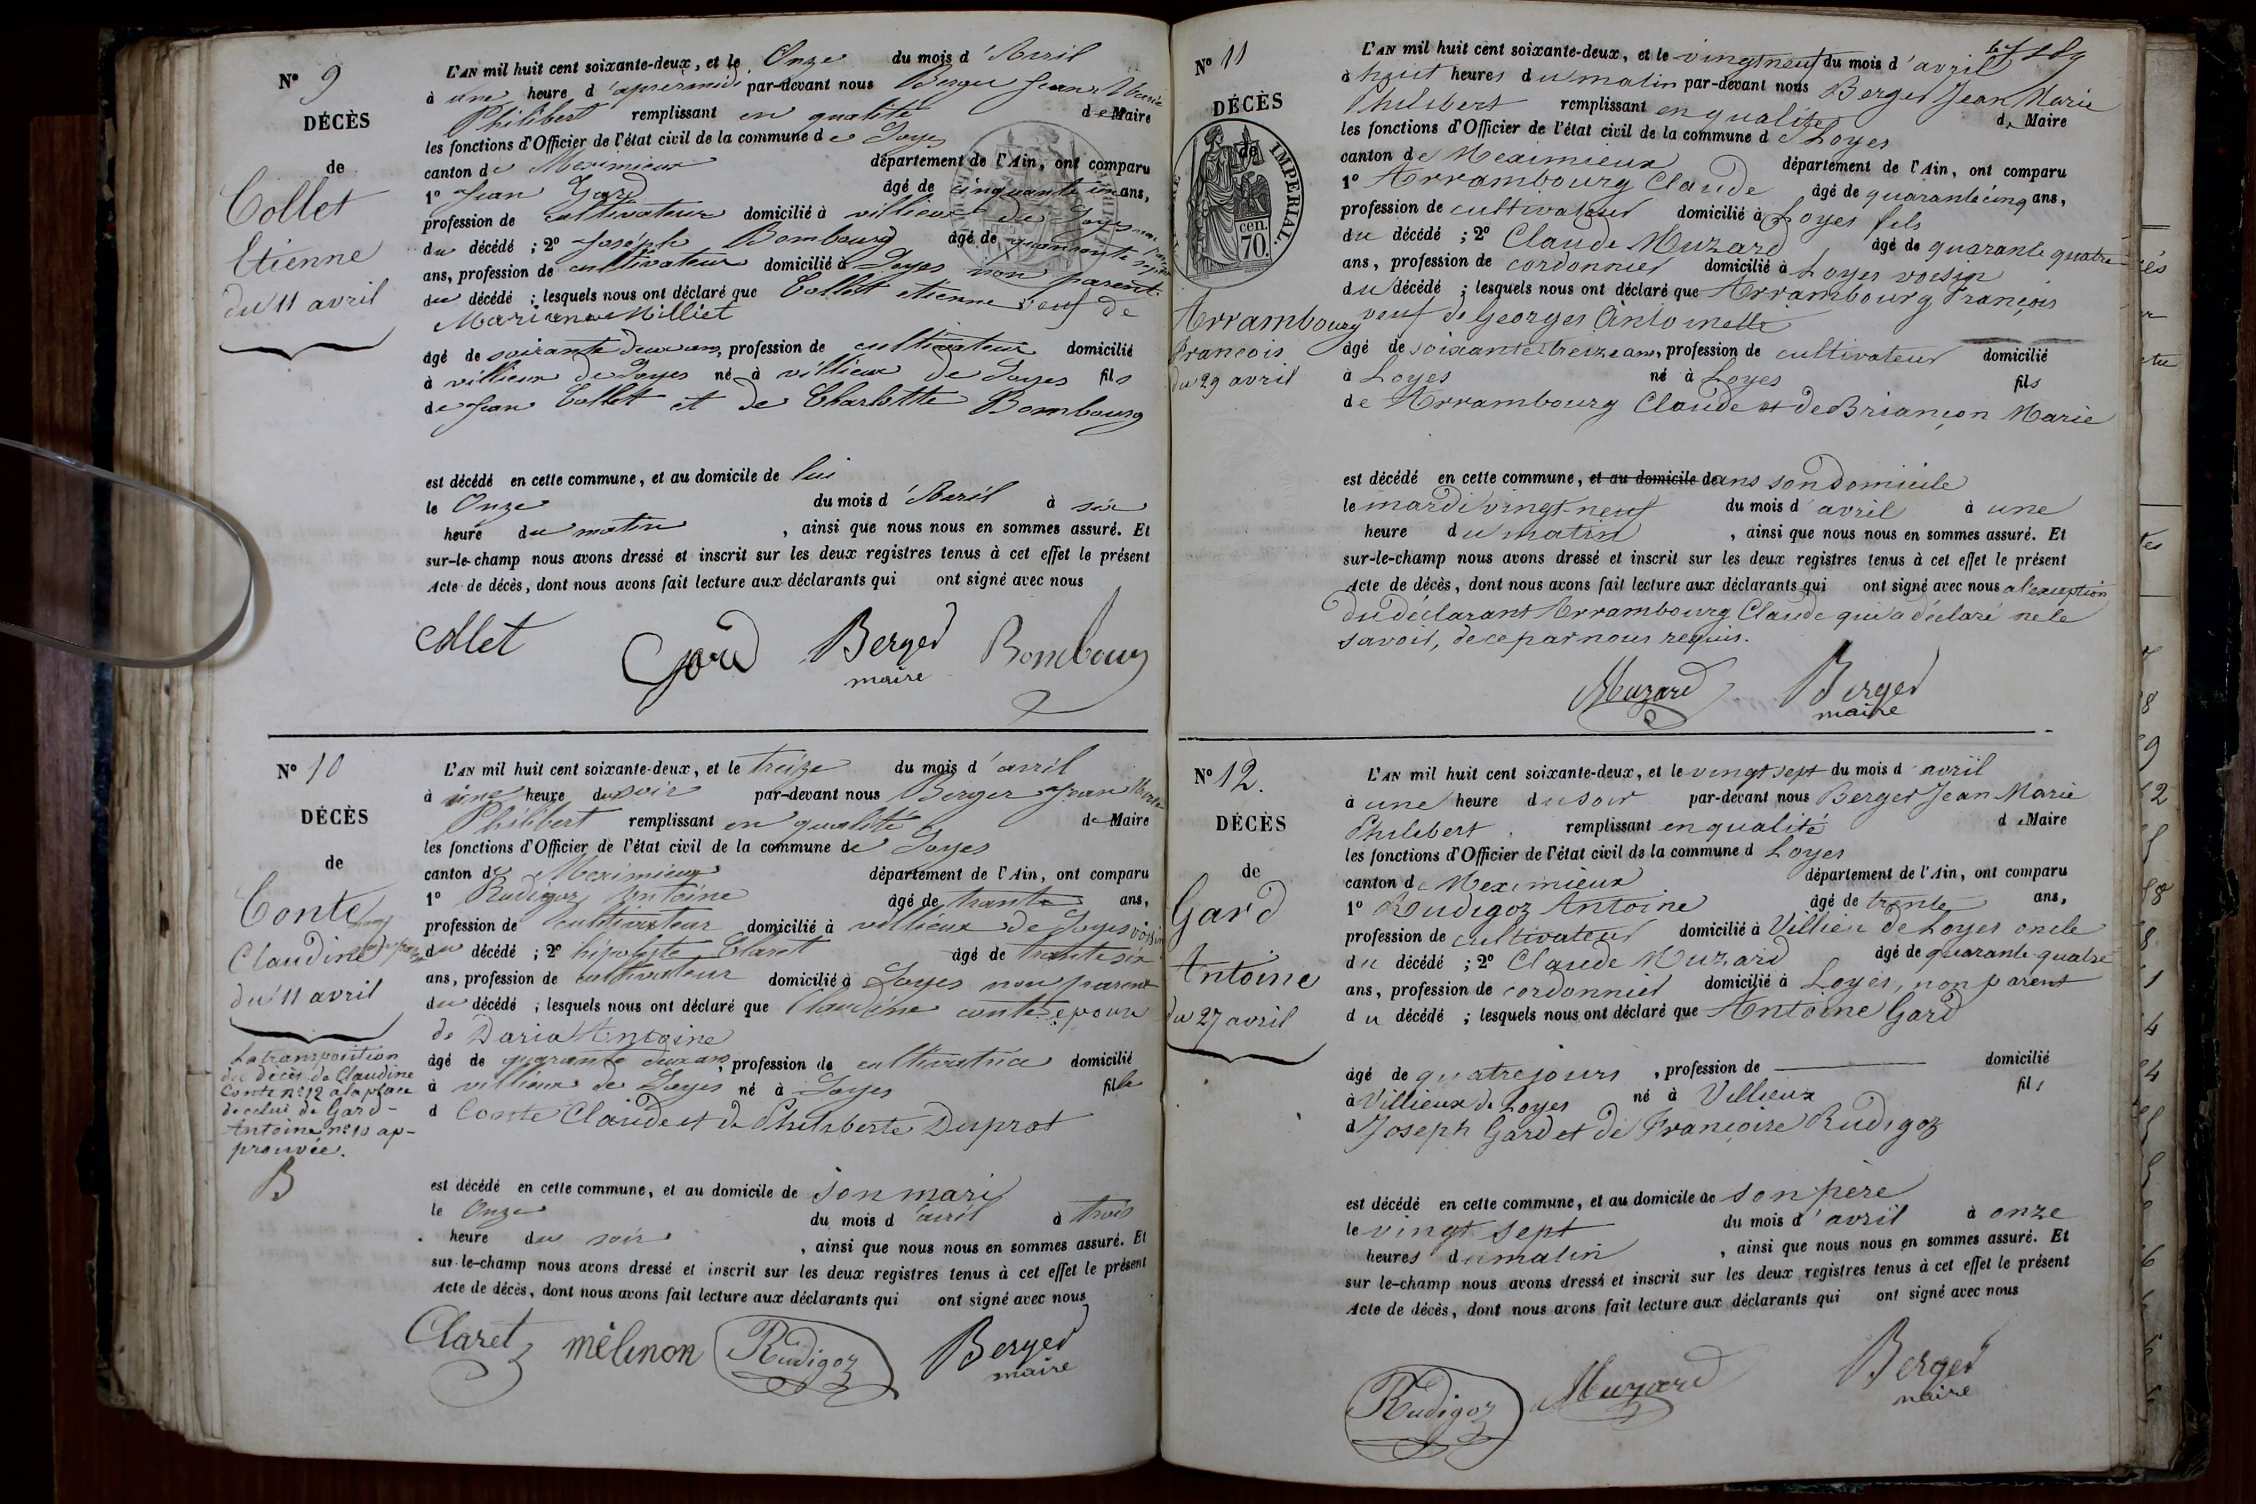 N° 9
DÉCÈS
de
Collet
Etienne
du 11 avril
L'AN mil huit cent soixante-deux, et le Onze du mois d'Avril
à une heure d'apresmidi par-devant nous Berger Jean Marie
Philibert remplissant en qualité de Maire
les fonctions d'Officier de l'état civil de la commune de Loyes
canton de Meximieux département de l'Ain, ont comparu
1° Jean Gard âgé de cinquante un ans,
profession de cultivateur domicilié à villieux de Loyes
du décédé ; 2° Joseph Bombourg âgé de quarante
ans, profession de cultivateur domicilié à Loyes non parent
du décédé ; lesquels nous ont déclaré que Collet etienne veuf de
Mariane Milliet
âgé de soixante deux ans, profession de cultivateur domicilié
à villieux de Loyes né à villieux de Loyes fils
de Jean Collet et de Charlotte Bombourg
est décédé en cette commune, et au domicile de lui
le Onze du mois d'Avril à six
heure du matin , ainsi que nous nous en sommes assuré. Et
sur-le-champ nous avons dressé et inscrit sur les deux registres tenus à cet effet le présent
Acte de décès, dont nous avons fait lecture aux déclarants qui ont signé avec nous
Collet Gard Berger Bombourg
maire
N° 10
DÉCÈS
de
Conte
Claudine
du 11 avril
La transposition
du décès de Claudine
Conte n° 12 a la place
de celui de Gard
Antoine n° 10 ap-
prouvée.
B
L'AN mil huit cent soixante-deux, et le treize du mois d'avril
à une heure du soir par-devant nous Berger Jean Marie
Philibert remplissant en qualité de Maire
les fonctions d'Officier de l'état civil de la commune de Loyes
canton de Meximieux département de l'Ain, ont comparu
1° Rudigoz Antoine âgé de trente ans,
profession de cultivateur domicilié à villieux de Loyes voisin
du décédé ; 2° hipolyte Claret âgé de trente six
ans, profession de cultivateur domicilié à Loyes non parent
du décédé ; lesquels nous ont déclaré que Claudine conte epouse
de Daria Antoine
âgé de quarante deux ans, profession de cultivatrice domicilié
à villieux de Loyes né à Loyes fille
d Conte Claude et de Philiberte Duprat
est décédé en cette commune, et au domicile de son mari
le Onze du mois d'avril à trois
heure du soir , ainsi que nous nous en sommes assuré. Et
sur-le-champ nous avons dressé et inscrit sur les deux registres tenus à cet effet le présent
Acte de décès, dont nous avons fait lecture aux déclarants qui ont signé avec nous
Claret mélinon Rudigoz Berger
maire
N° 11
DÉCÈS
de
IMPÉRIAL.
70. cen.
Arrambourg
François
du 29 avril
L'AN mil huit cent soixante-deux, et le vingt neuf du mois d'avril
à huit heures du matin par-devant nous Berger Jean Marie
Philibert remplissant en qualité de Maire
les fonctions d'Officier de l'état civil de la commune de Loyes
canton de Meximieux département de l'Ain, ont comparu
1° Arrambourg Claude âgé de quarante cinq ans,
profession de cultivateur domicilié à Loyes fils
du décédé ; 2° Claude Muzard âgé de quarante quatre
ans, profession de cordonnier domicilié à Loyes voisin
du décédé ; lesquels nous ont déclaré que Arrambourg François
veuf de Georges Antoinette
âgé de soixante treize ans, profession de cultivateur domicilié
à Loyes né à Loyes fils
de Arrambourg Claude et de Briançon Marie
est décédé en cette commune, et au domicile dans son domicile
le mardi vingt neuf du mois d'avril à une
heure du matin , ainsi que nous nous en sommes assuré. Et
sur-le-champ nous avons dressé et inscrit sur les deux registres tenus à cet effet le présent
Acte de décès, dont nous avons fait lecture aux déclarants qui ont signé avec nous a l'exception
du déclarant Arrambourg Claude qui a déclaré ne le
savoir, de ce par nous requis.
Muzard Berger
maire
N° 12.
DÉCÈS
de
Gard
Antoine
du 27 avril
L'AN mil huit cent soixante-deux, et le vingt sept du mois d'avril
à une heure du soir par-devant nous Berger Jean Marie
Philibert remplissant en qualité de Maire
les fonctions d'Officier de l'état civil de la commune d Loyes
canton de Meximieux département de l'Ain, ont comparu
1° Rudigoz Antoine âgé de trente ans,
profession de cultivateur domicilié à Villieu de Loyes oncle
du décédé ; 2° Claude Muzard âgé de quarante quatre
ans, profession de cordonnier domicilié à Loyes, non parent
du décédé ; lesquels nous ont déclaré que Antoine Gard
âgé de quatre jours , profession de domicilié
à Villieux de Loyes né à Villieux fils
d Joseph Gard et de Françoise Rudigoz
est décédé en cette commune, et au domicile de son père
le vingt sept du mois d'avril à onze
heures du matin , ainsi que nous nous en sommes assuré. Et
sur le-champ nous avons dressé et inscrit sur les deux registres tenus à cet effet le présent
Acte de décès, dont nous avons fait lecture aux déclarants qui ont signé avec nous
Rudigoz Muzard Berger
maire